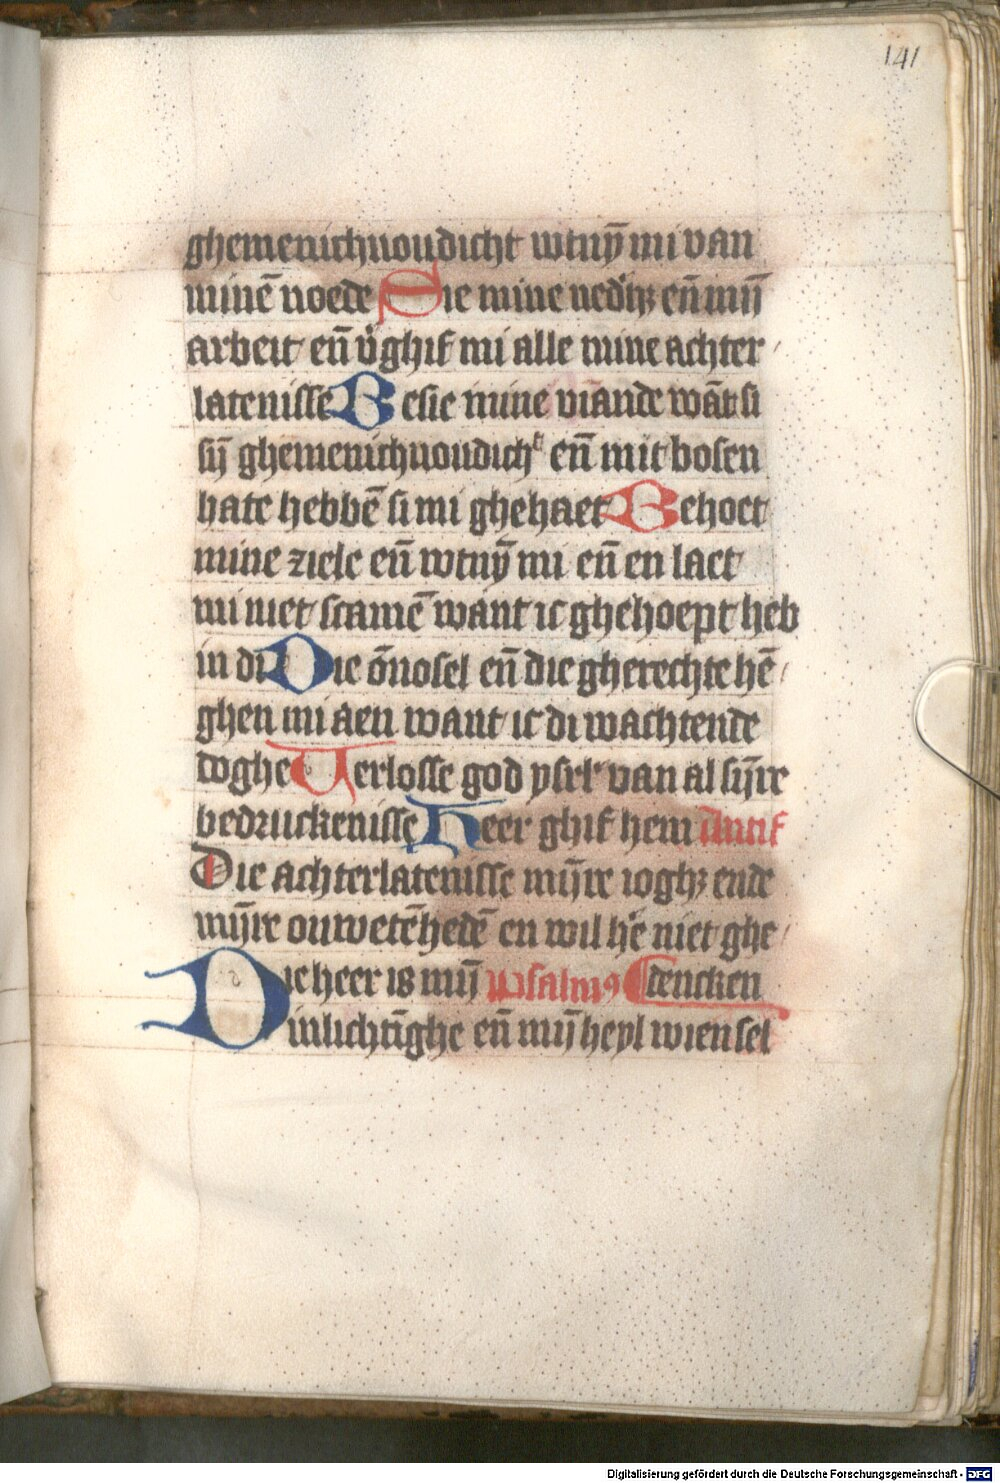 141
ghemenichuoudicht wtuȳ mi van
minē noede Sie mine nedʼhꝫ en̄ mīj
arbeit en̄ vʼghif mi alle mine achter
latenisse Besie mine viānde wāt si
sīj ghemenichuoudichᵗ en̄ mit bosen
hate hebbē si mi ghehaet Behoet
mine ziele en̄ wtuȳ mi en̄ en laet
mi niet scamē want ic ghehoept heb
in di Die ōnosel en̄ die gherechte hē
ghen mi aen want ic di wachtende
doghe Uerlosse god ysrʼl van al sījre
bedruckenisse Heer ghif hem Antif
Die achterlatenisse mījre ioghꝫ ende
mījre onwetēhedē en wil hʼe niet ghe
Die heer is mīj psalmꝰ dencken
inlichtīghe en̄ mīj heyl wien sel
Digitalisierung gefördert durch die Deutsche Forschungsgemeinschaft - DFG